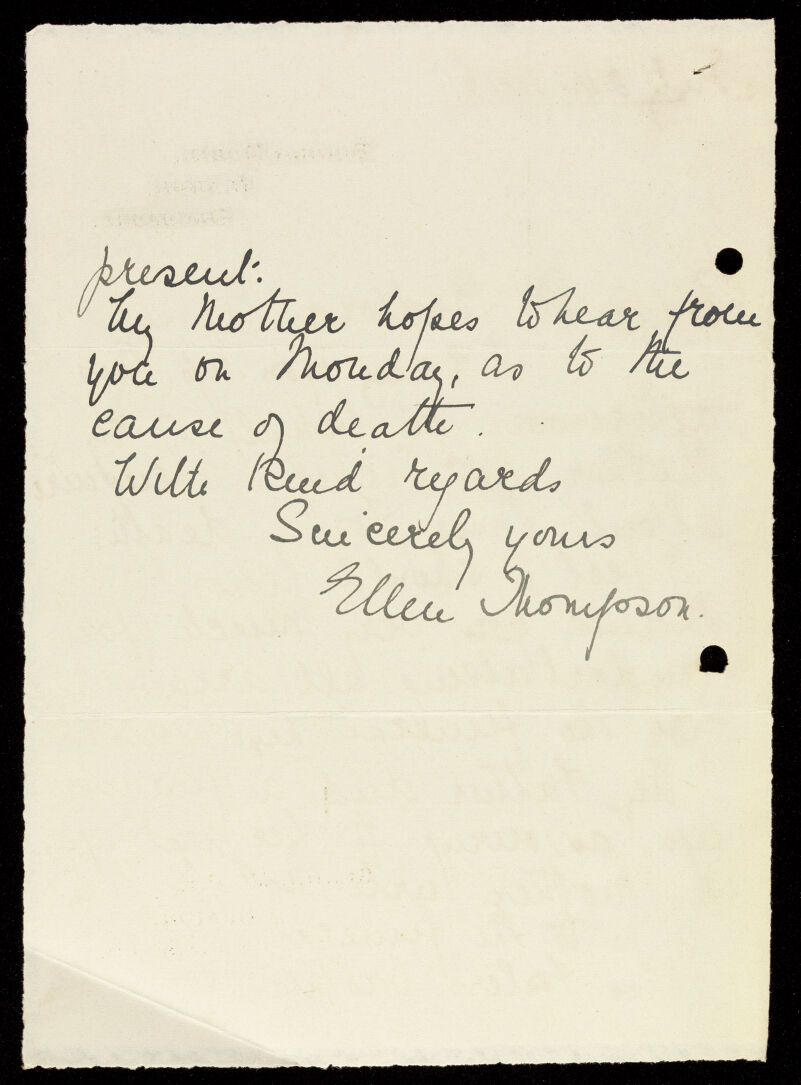 present.
My Mother hopes to hear from
you on Monday, as to the
cause of death.
With kind regards
Sincerely yours
Ellen Thompson.